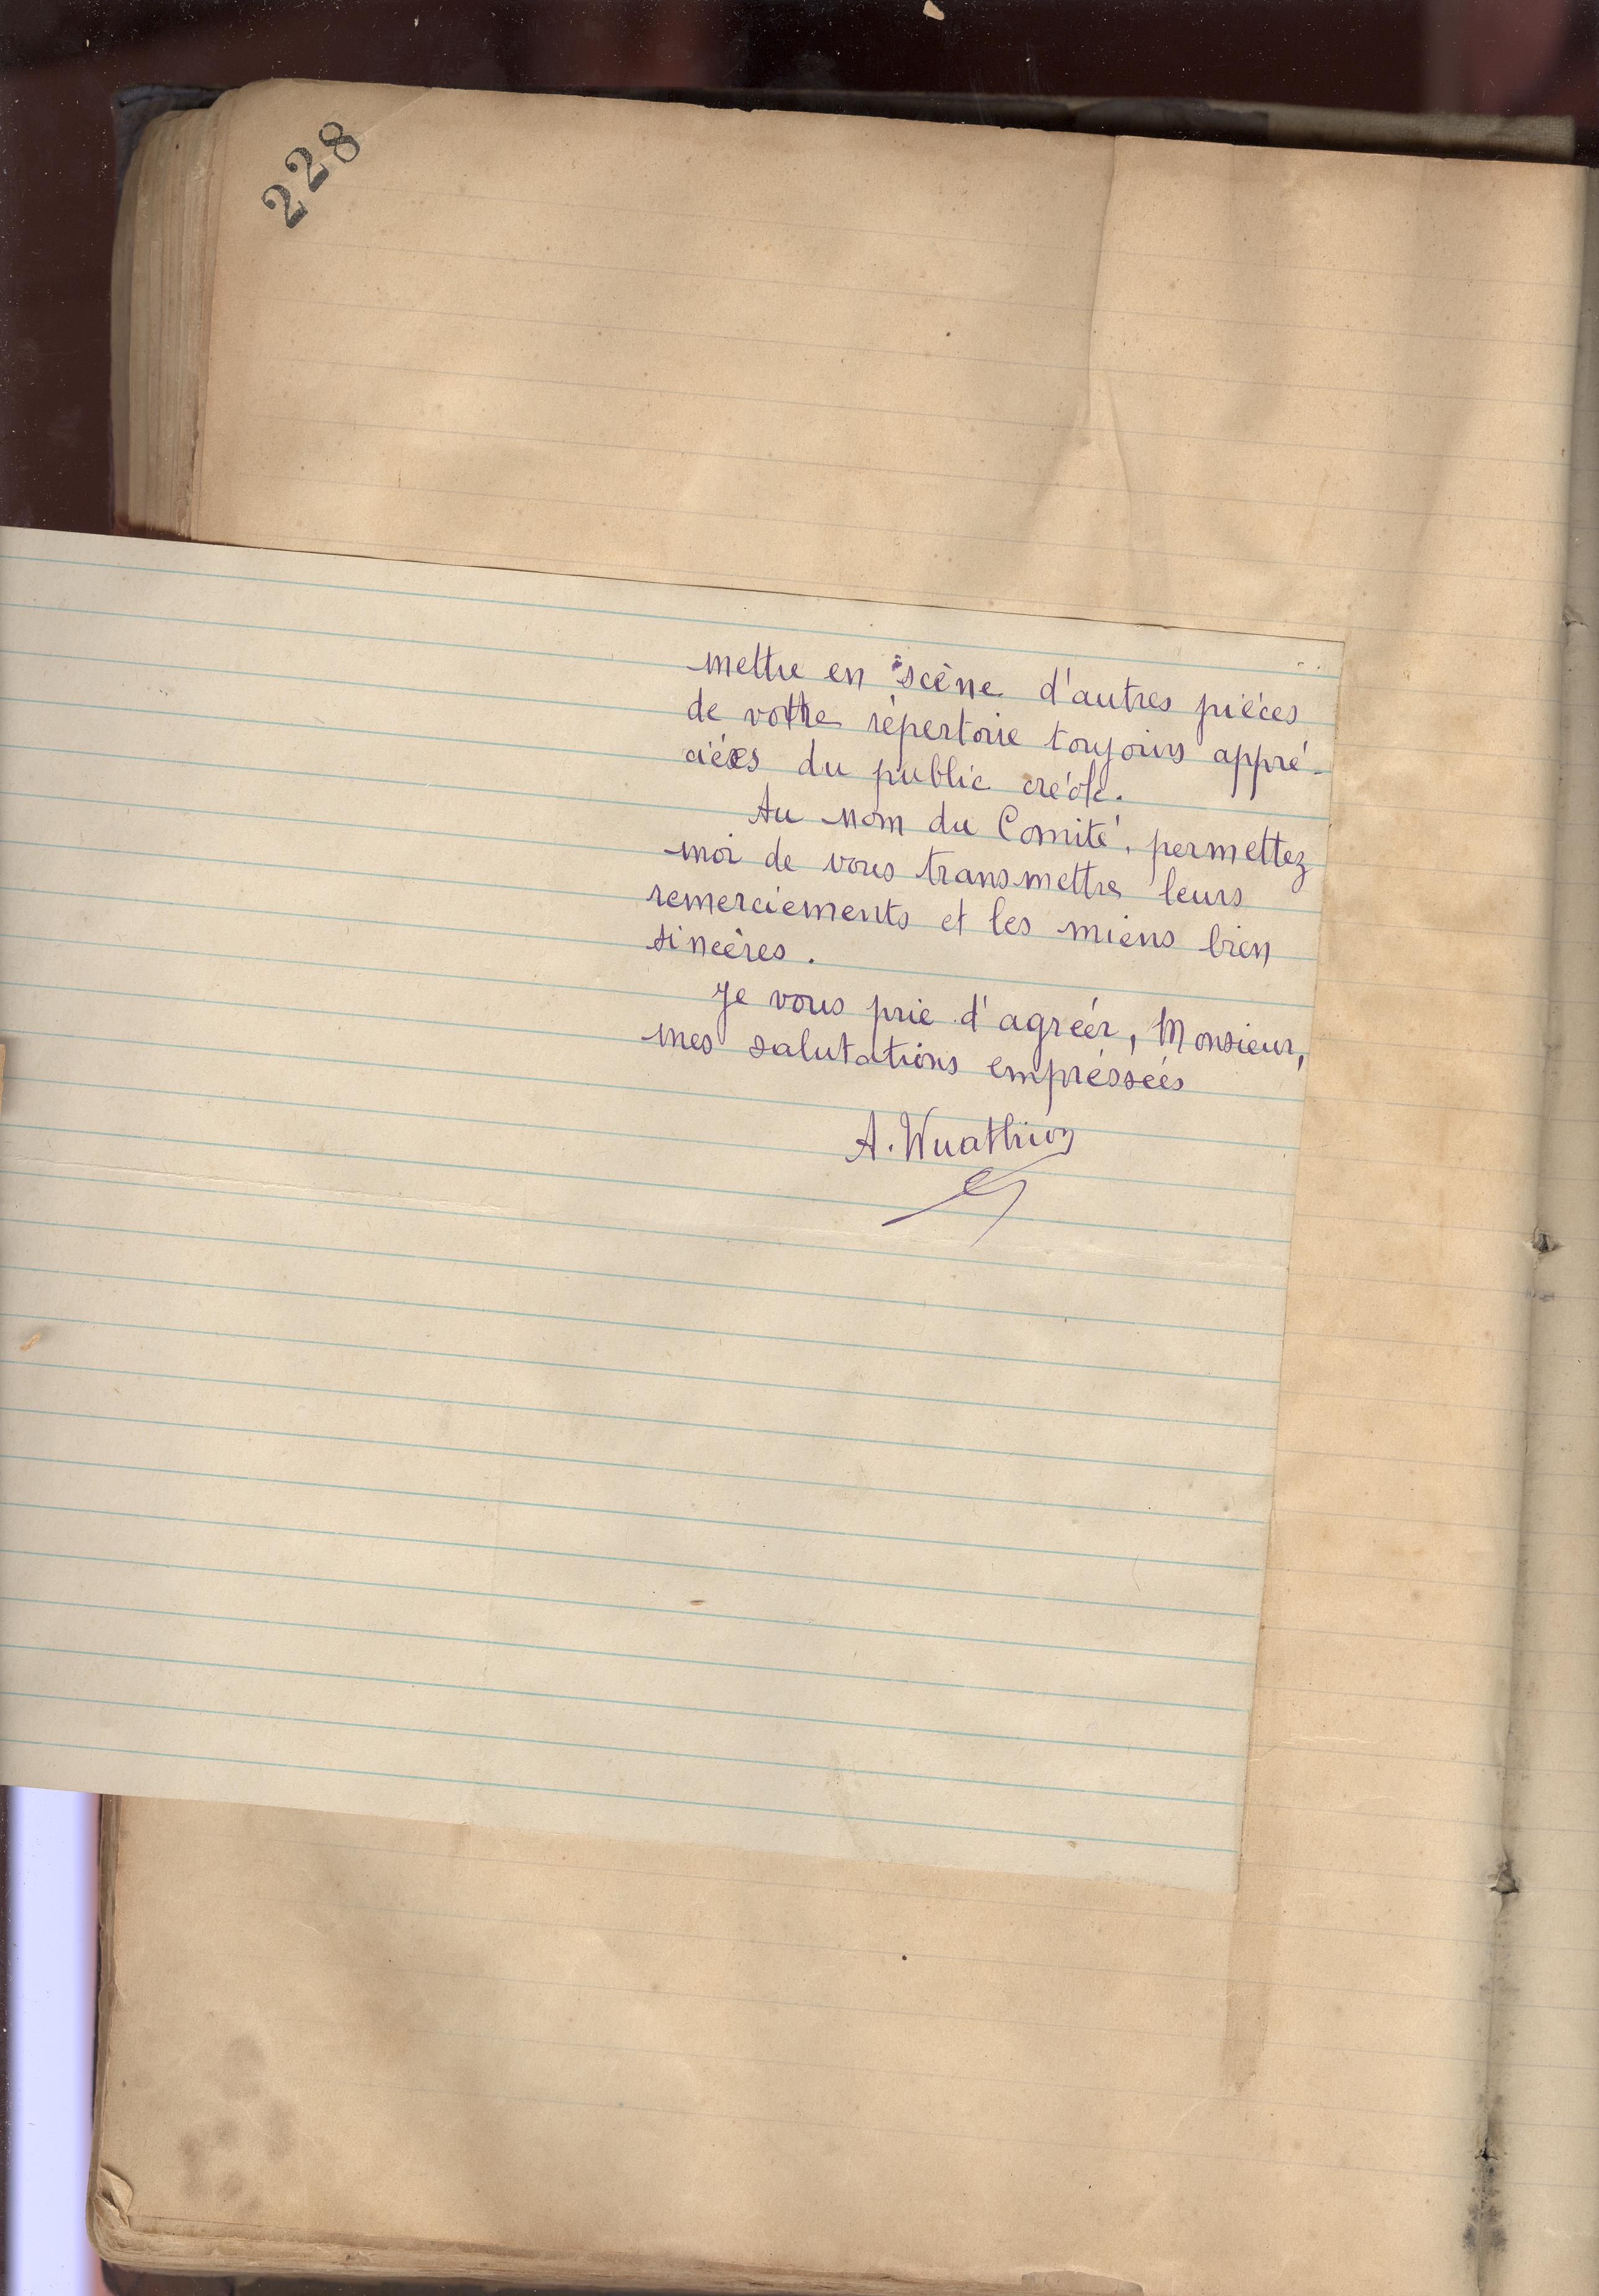 228
mettre en scène d'autres pièces
de votre répertoire toujours appré-
ciées du public créole.
Au nom du Comité, permettez
moi de vous transmettre leurs
remerciements et les miens bien
sincères.
Je vous prie d'agréer, Monsieur,
mes salutations empréssées
A. Wuathion